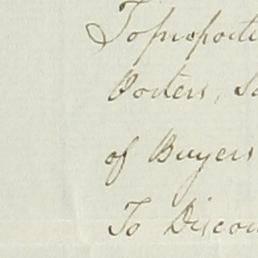 To proporti
Porters, Sa
of Buyers
To Discou